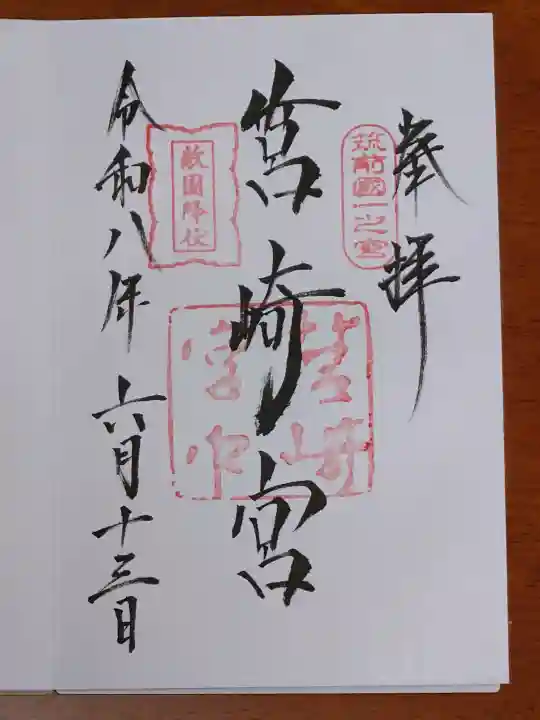 奉拝
筑前國一之宮
筥崎宮
筥崎
宮印
敵国降伏
令和八年六月十三日